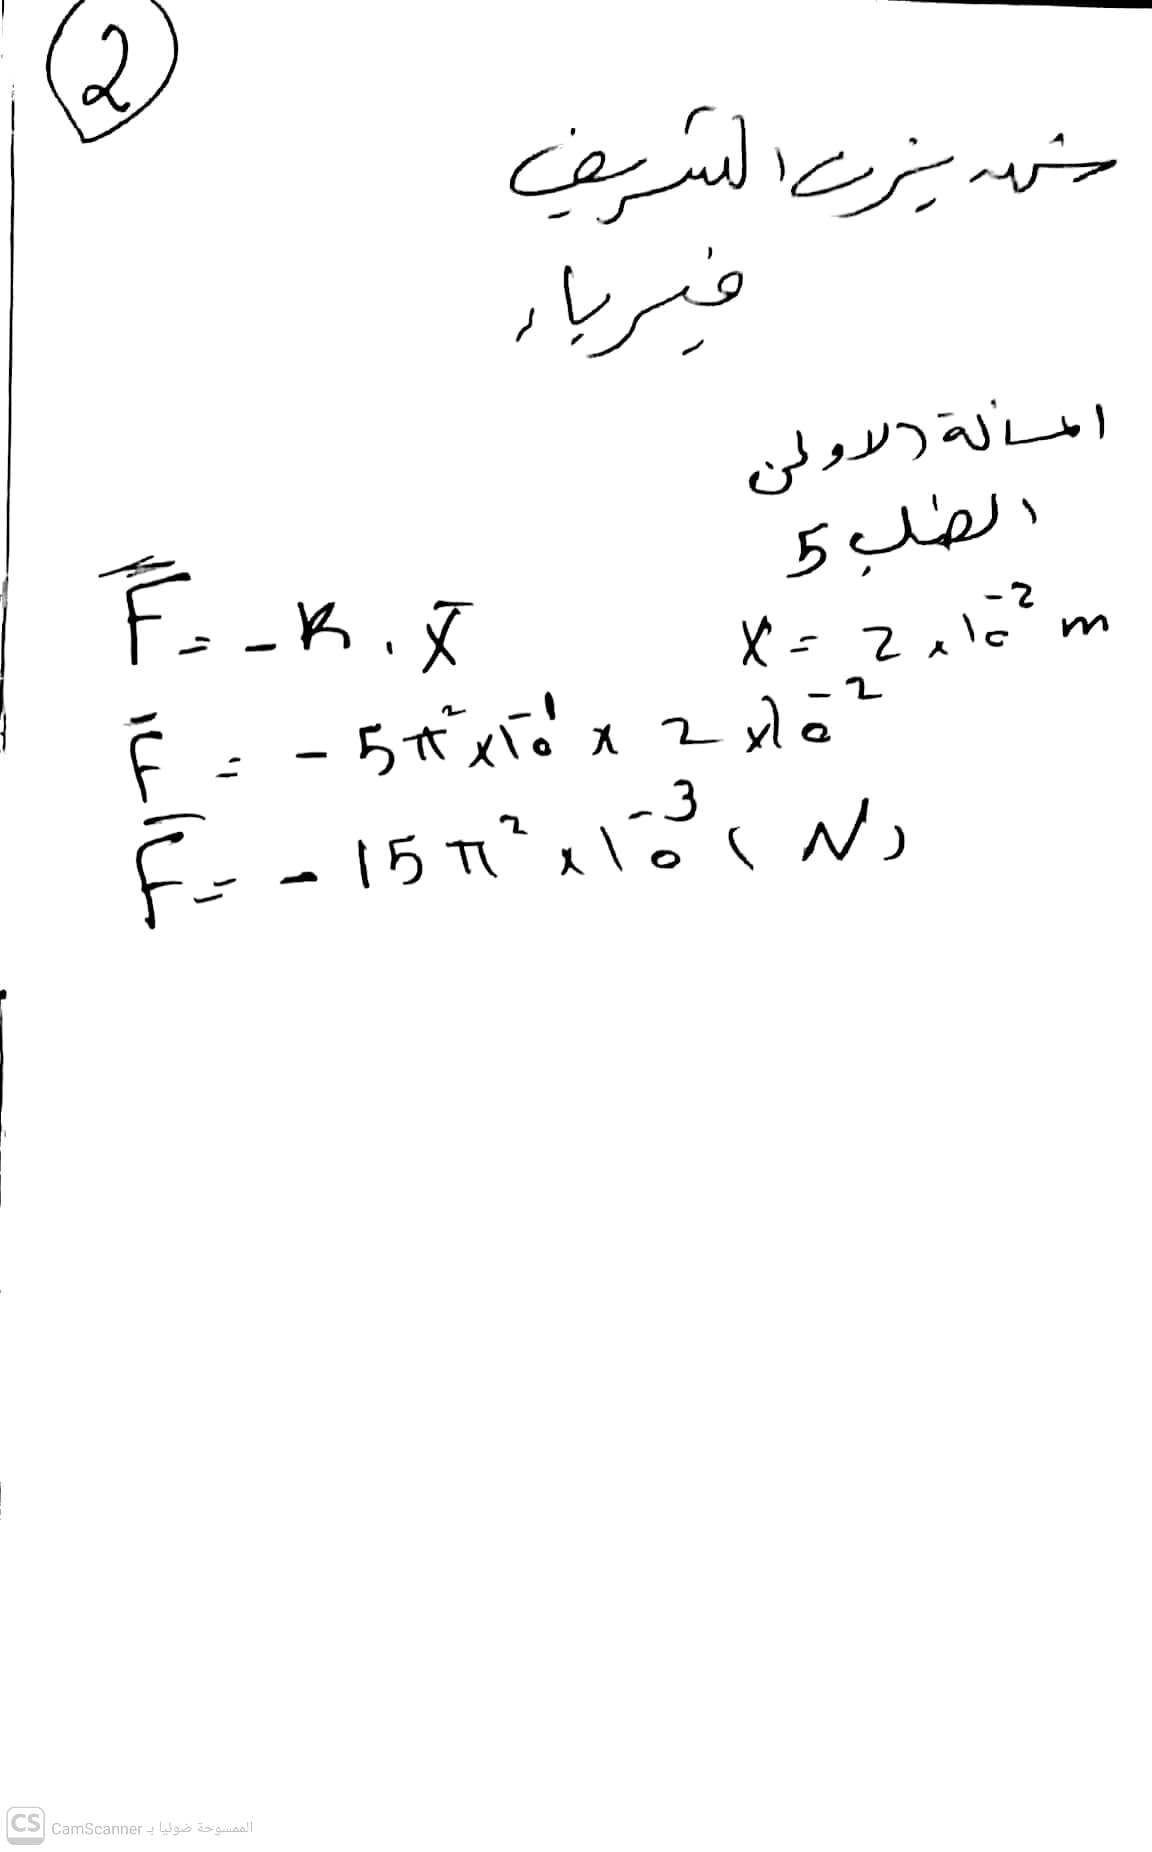 2
شهد يزن الشريف
فيزياء
المسألة الاولى
الطلب 5
X = 2 × 10⁻² m
F̅ = - K . X̅
F̅ = - 5π² × 10⁻¹ × 2 × 10⁻²
F̅ = - 15 π² × 10⁻³ (N)
CS CamScanner الممسوحة ضوئيا بـ